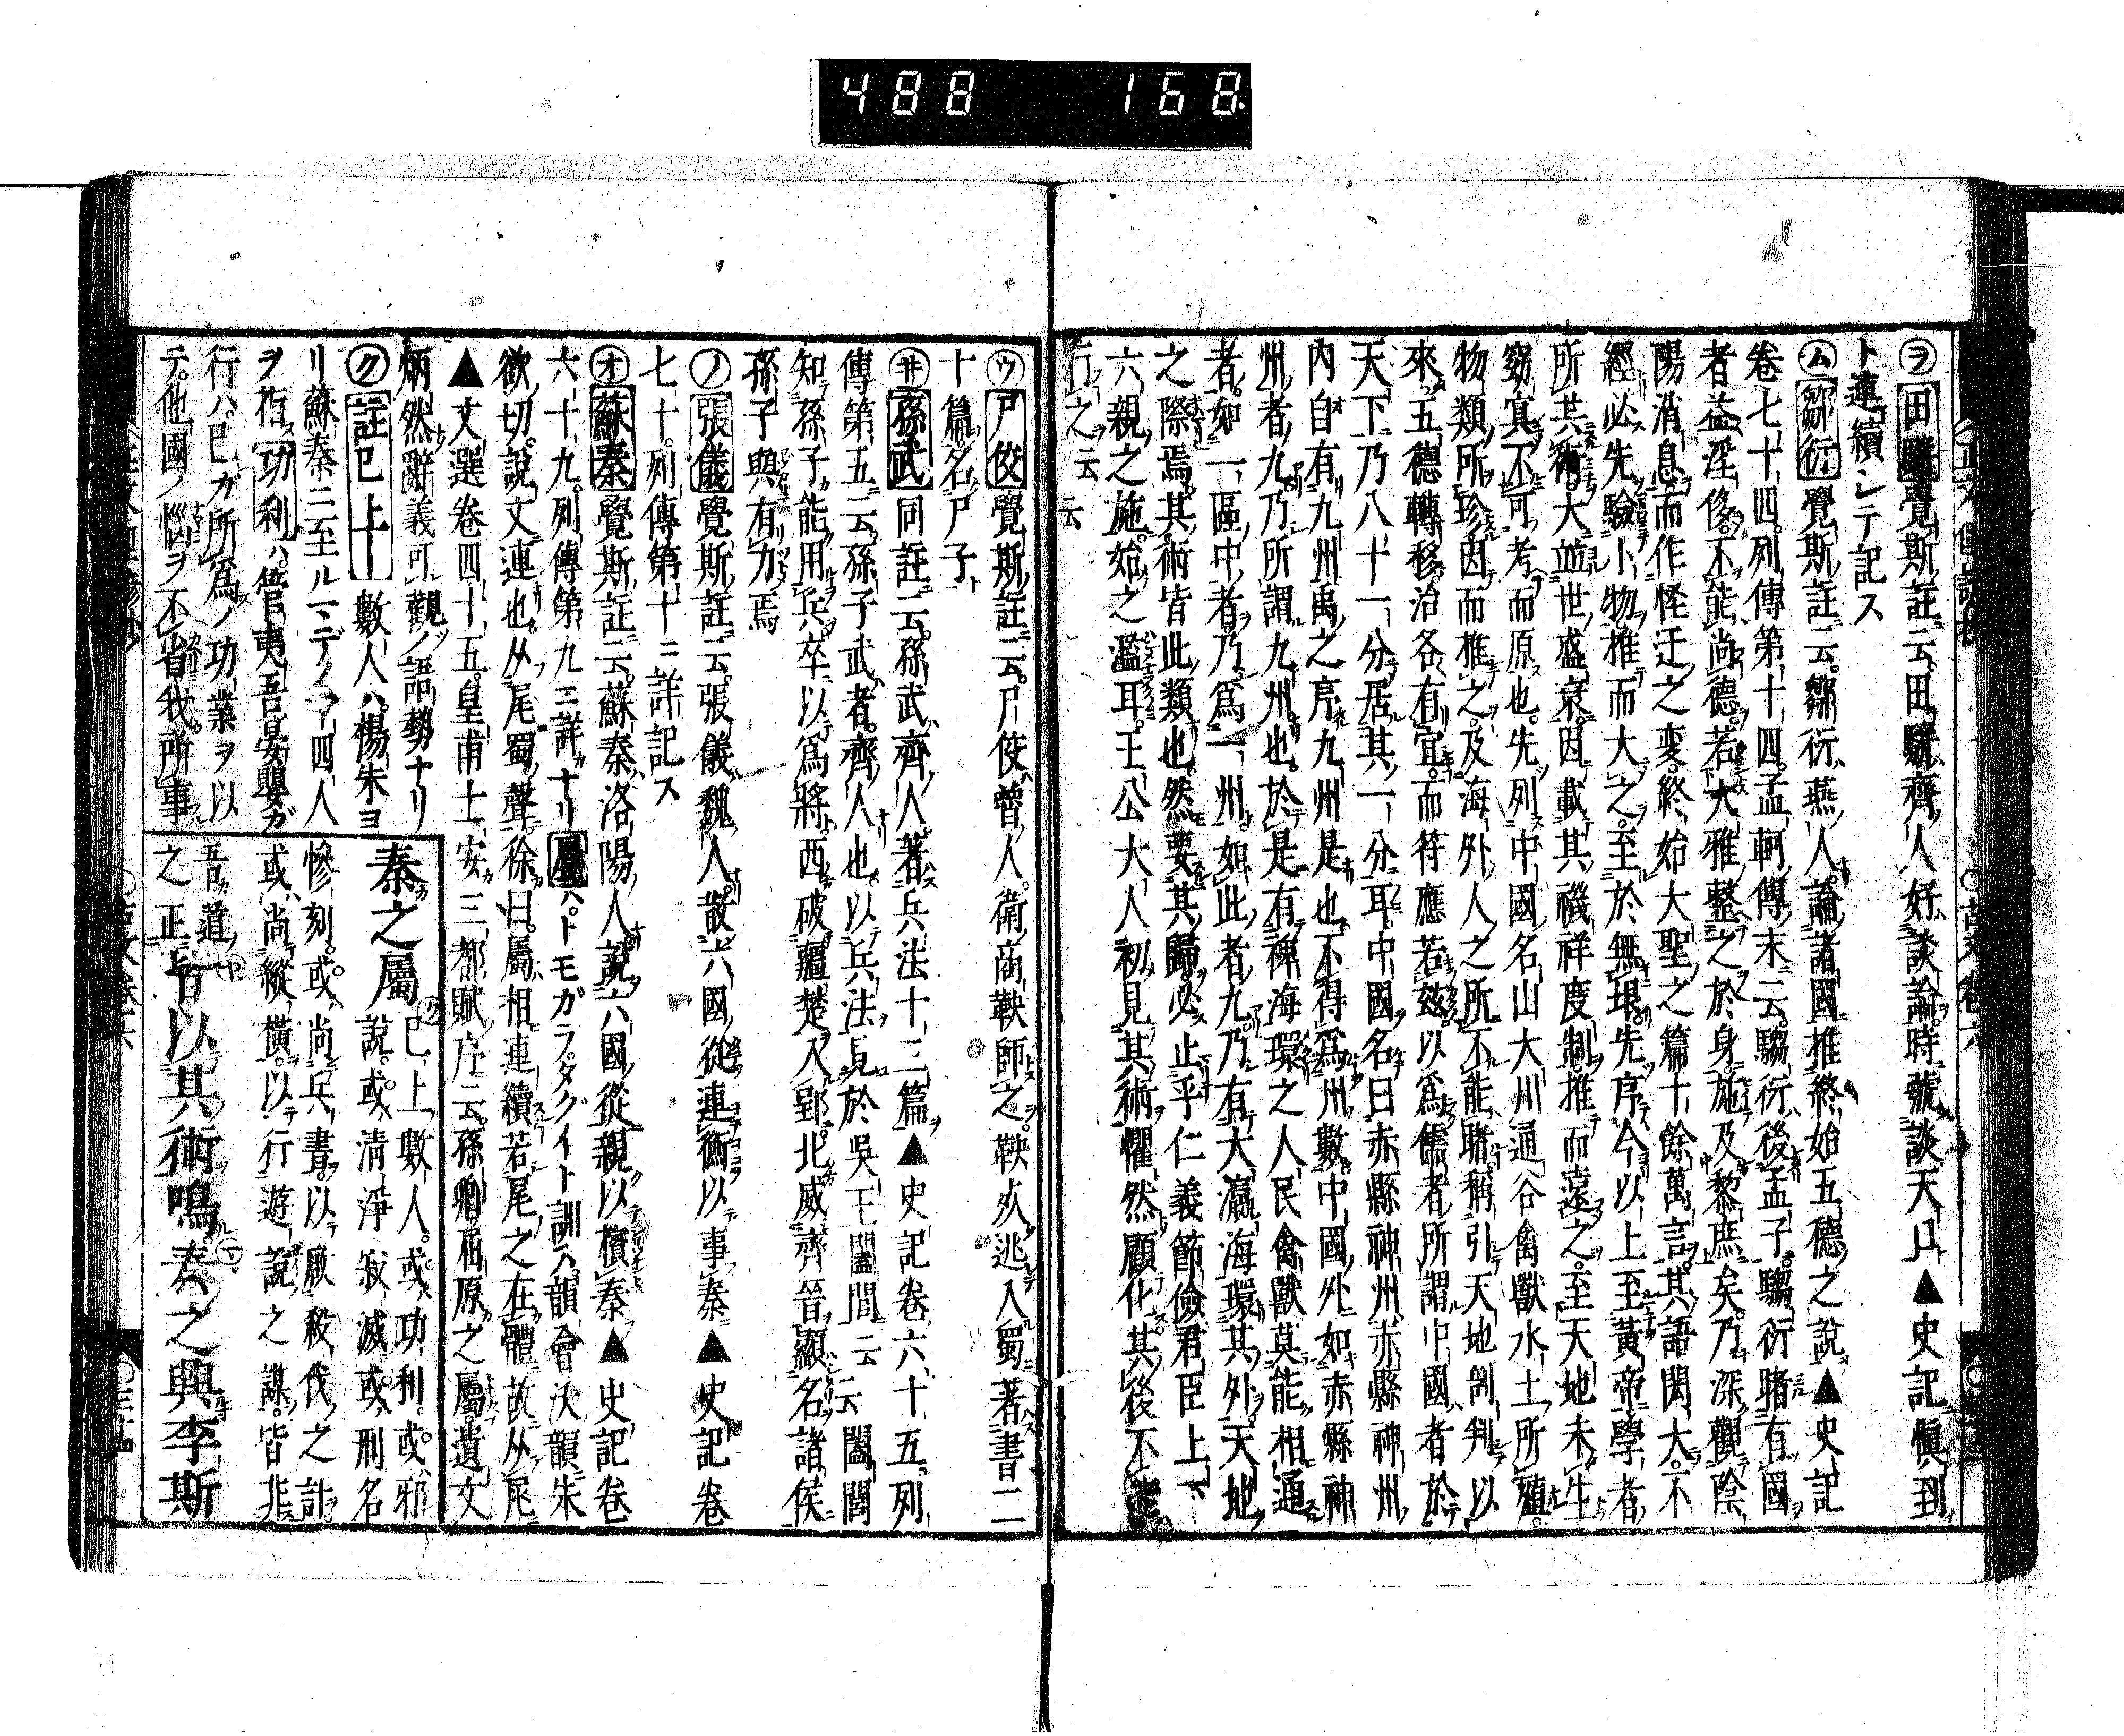 488 168
㋶田駢覺斯註云。田駢齊人好談論。時號談天口▲史記愼到
ト連續シテ記ス
㋰鄒衍覺斯註云。鄒衍燕人。論諸國推終始五德之說▲史記
卷七十四。列傳第十四。孟軻傳末云。騶衍後孟子。騶衍睹有國
者益淫侈。不能尚德。若大雅整之於身施及黎庶矣。乃深觀陰
陽消息而作怪迂之変。終始大聖之篇十餘萬言。其語閎大不
經必先驗小物推而大之。至於無垠。先序今以上至黃帝。學者
所共術。大並世盛衰。因載其禨祥度制推而遠之。至天地未生
窈冥不可考而原也。先列中國名山大川通谷禽獸水土所殖
物類所珍因而推之。及海外人之所不能睹。稱引天地剖判以
來。五德轉移。治各有宜。而符應若茲。以爲儒者所謂中國者於
天下乃八十一分居其一分耳。中國名曰赤縣神州。赤縣神州
內自有九州禹之序九州是也。不得爲州數。中國外如赤縣神
州者九乃所謂九州也。於是有裨海環之人民禽獸莫能相通
者。如一區中者。乃爲一州。如此者九。乃有大瀛海環其外。天地
之際焉。其術皆此類也。然要其歸。必止乎仁義節儉君臣上下
六親之施。始之濫耳。王公大人初見其術懼然顧化其後不能
行之云云
㋒尸佼覺斯註云。尸佼曾人。衞商鞅師之。鞅死逃入蜀著書二
十篇名尸子
㋼孫武同註云。孫武齊人。著兵法十三篇▲史記卷六十五。列
傳第五云。孫子武者。齊人也。以兵法見於吳王闔閭云云闔閭
知孫子能用兵。卒以爲將。西破疆楚入郢。北威齊晉。顯名諸侯
孫子與有力焉
㋨張儀覺斯註云。張儀魏人散六國從連衡以事秦▲史記卷
七十。列傳第十ニ詳記ス
㋔蘇秦覺斯註云。蘇秦洛陽人。說六國從親以擯秦▲史記卷
六十九。列傳第九ニ詳ナリ屬ハトモガラタグイト訓ス。韻會沃韻朱
欲切。說文連也。从尾蜀聲。徐曰。屬相連續若尾之在體故从尾
▲文選卷四十五。皇甫士安三都賦序云。孫卿屈原之屬遺文
炳然辭義可觀ノ語勢ナリ
㋗註已上━數人ハ。楊朱ヨ
リ蘇秦ニ至ルマデノ十四人
ヲ指ス功利ハ。管夷吾晏嬰ガ
行ハ。已ガ所爲ノ功業ヲ以
テ。他國ノ凶ヲ不省我所事
秦之屬。㋗已上數人。或功利。或邪
說。或淸淨寂滅。或刑名
慘刻。或尚兵書。以厰殺伐之計
或尚縱橫。以行遊說之謀。皆非
吾道
之正皆以其術鳴秦之興李斯